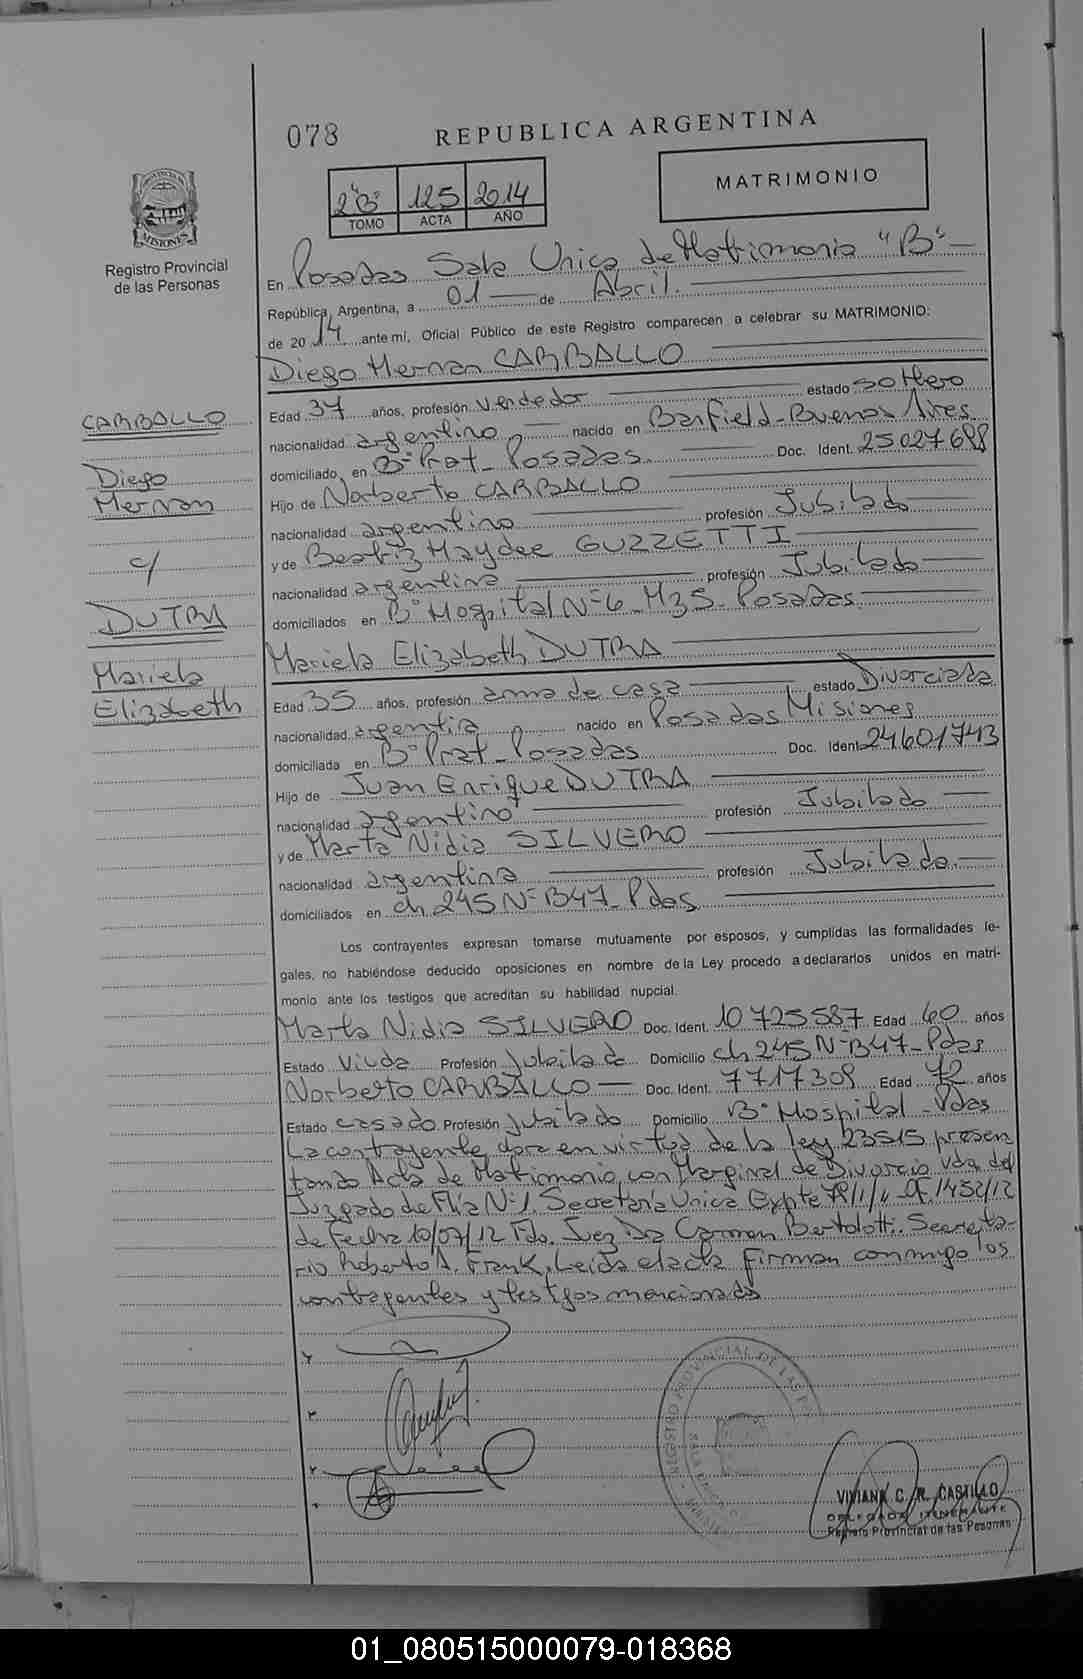 078
REPUBLICA ARGENTINA
2"B" 125 2014
TOMO ACTA AÑO
MATRIMONIO
PROVINCIA DE MISIONES
Registro Provincial
de las Personas
En Posadas Sala Unica de Matrimonio "B"
República Argentina, a 01 de Abril.
de 2014 ante mi, Oficial Público de este Registro comparecen a celebrar su MATRIMONIO:
Diego Hernan CARBALLO
Edad 37 años, profesión vendedor estado soltero
nacionalidad argentino nacido en Banfield-Buenos Aires
domiciliado en B° Prat-Posadas Doc. Ident. 25027698
Hijo de Norberto CARBALLO
nacionalidad argentino profesión Jubilado
y de Beatriz Haydee GUZZETTI
nacionalidad argentina profesión Jubilado
domiciliados en B° Hospital N°6-M35-Posadas
Mariela Elizabeth DUTRA
Edad 35 años, profesión ama de casa estado Divorciada
nacionalidad argentia nacido en Posadas Misiones
domiciliada en B° Prat-Posadas Doc. Ident. 24601743
Hijo de Juan Enrique DUTRA
nacionalidad argentino profesión Jubilado
y de Marta Nidia SILVERO
nacionalidad argentina profesión Jubilada
domiciliados en ch 245 N°B47-Pdas
CARBALLO
Diego
Hernan
c/
DUTRA
Mariela
Elizabeth
Los contrayentes expresan tomarse mutuamente por esposos, y cumplidas las formalidades le-
gales, no habiéndose deducido oposiciones en nombre de la Ley procedo a declararlos unidos en matri-
monio ante los testigos que acreditan su habilidad nupcial.
Marta Nidia SILVERO Doc. Ident. 10725587 Edad 60 años
Estado Viuda Profesión Jubilado Domicilio ch 245 N°B47-Pdas
Norberto CARBALLO Doc. Ident. 7717309 Edad 72 años
Estado casado Profesión Jubilado Domicilio B° Hospital-Pdas
La contrayente, dora en virtud de la ley 23515 presen
tando Acta de Matrimonio con Marginal de Divorcio Vda del
Juzgado de Flia N°1. Secretaria Unica Expte Of. 1452/12
de Fecha 10/07/12 Fdo. Juez Dra Carmen Bertolotti. Secreta-
rio Roberto A. Frank. Leida el acta firman conmigo los
contrayentes y testigos mencionados
REGISTRO PROVINCIAL DE LAS
VIVIANA C. R. CASTILLO
DELEGADA ITINERANTE
Registro Provincial de las Pesonas
01_080515000079-018368